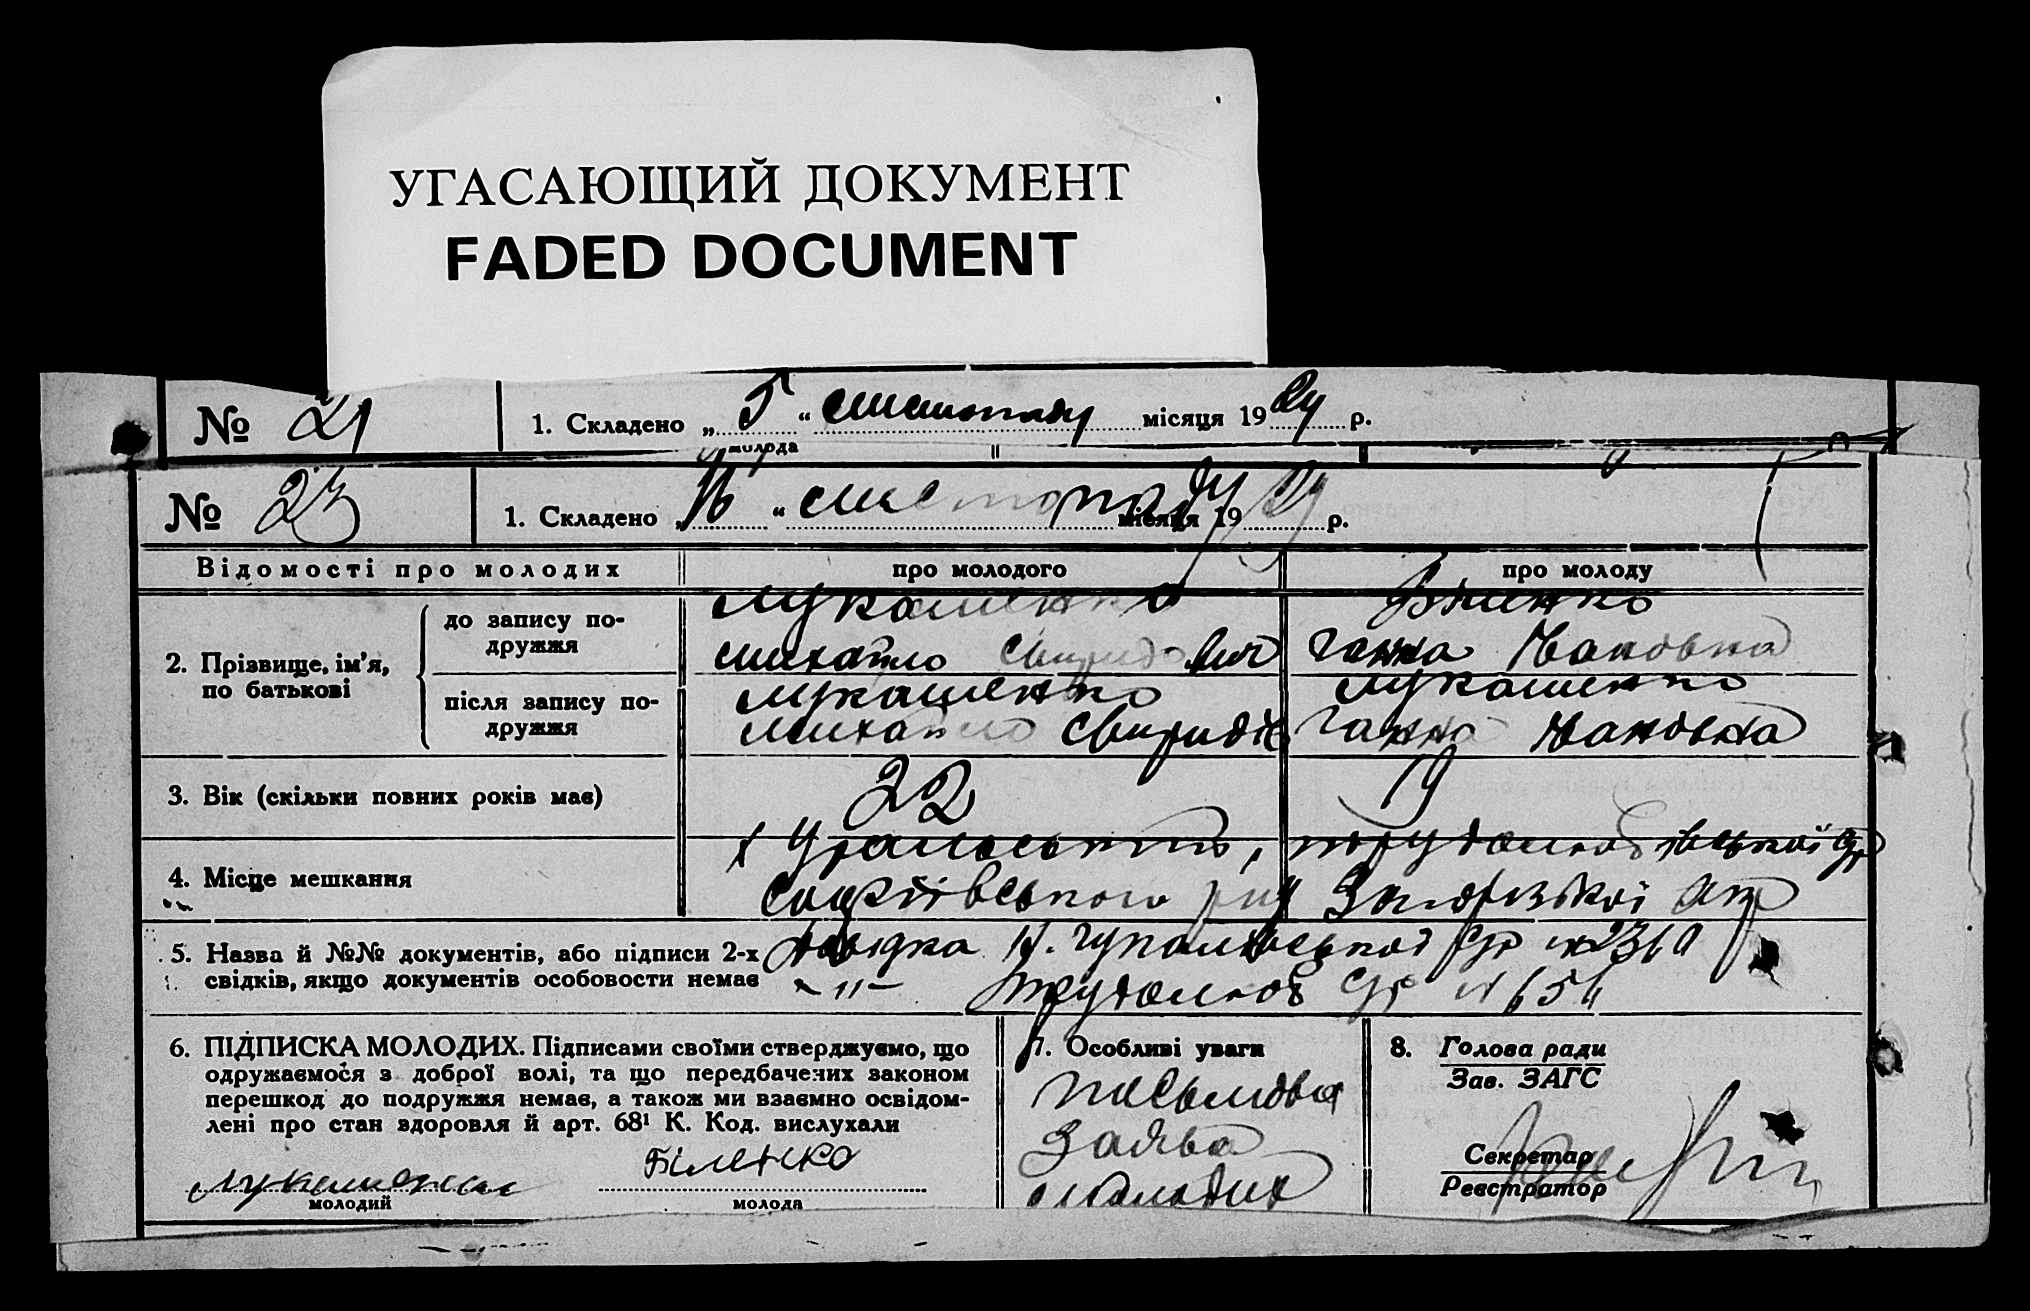 УГАСАЮЩИЙ ДОКУМЕНТ
FADED DOCUMENT
№ 21 1. Складено „ 5 “ листопаду місяця 19 29 р.
молода
№ 23 1. Складено „ 16 “ листопаду місяця 19 29 р.
Відомості про молодих про молодого про молоду
2. Прізвище, ім'я, по батькові
до запису подружжя
Лукашенко Біленко
Михайло Свиридович Ганна Івановна
після запису подружжя
Лукашенко Лукашенко
Михайло Свиридів Ганна Івановна
3. Вік (скільки повних років має) 22 19
4. Місце мешкання
Софіївського
5. Назва й №№ документів, або підписи 2-х
свідків, якщо документів особовости немає
Довідка
— „ —
6. ПІДПИСКА МОЛОДИХ. Підписами своїми стверджуємо, що
одружаємося з доброї волі, та що передбачених законом
перешкод до подружжя немає, а також ми взаємно освідом-
лені про стан здоровля й арт. 68¹ К. Код. вислухали
Лукашенко Біленко
молодий молода
7. Особливі уваги
письмова
заява
молодих
8. Голова ради
Зав. ЗАГС
Секретар
Реєстратор